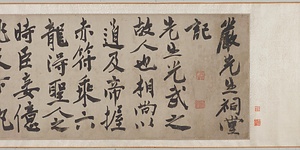 嚴先生祠堂
記
先生光武之
故人也相尚以
道及帝握
赤符乘六
龍得聖人之
時臣妾億